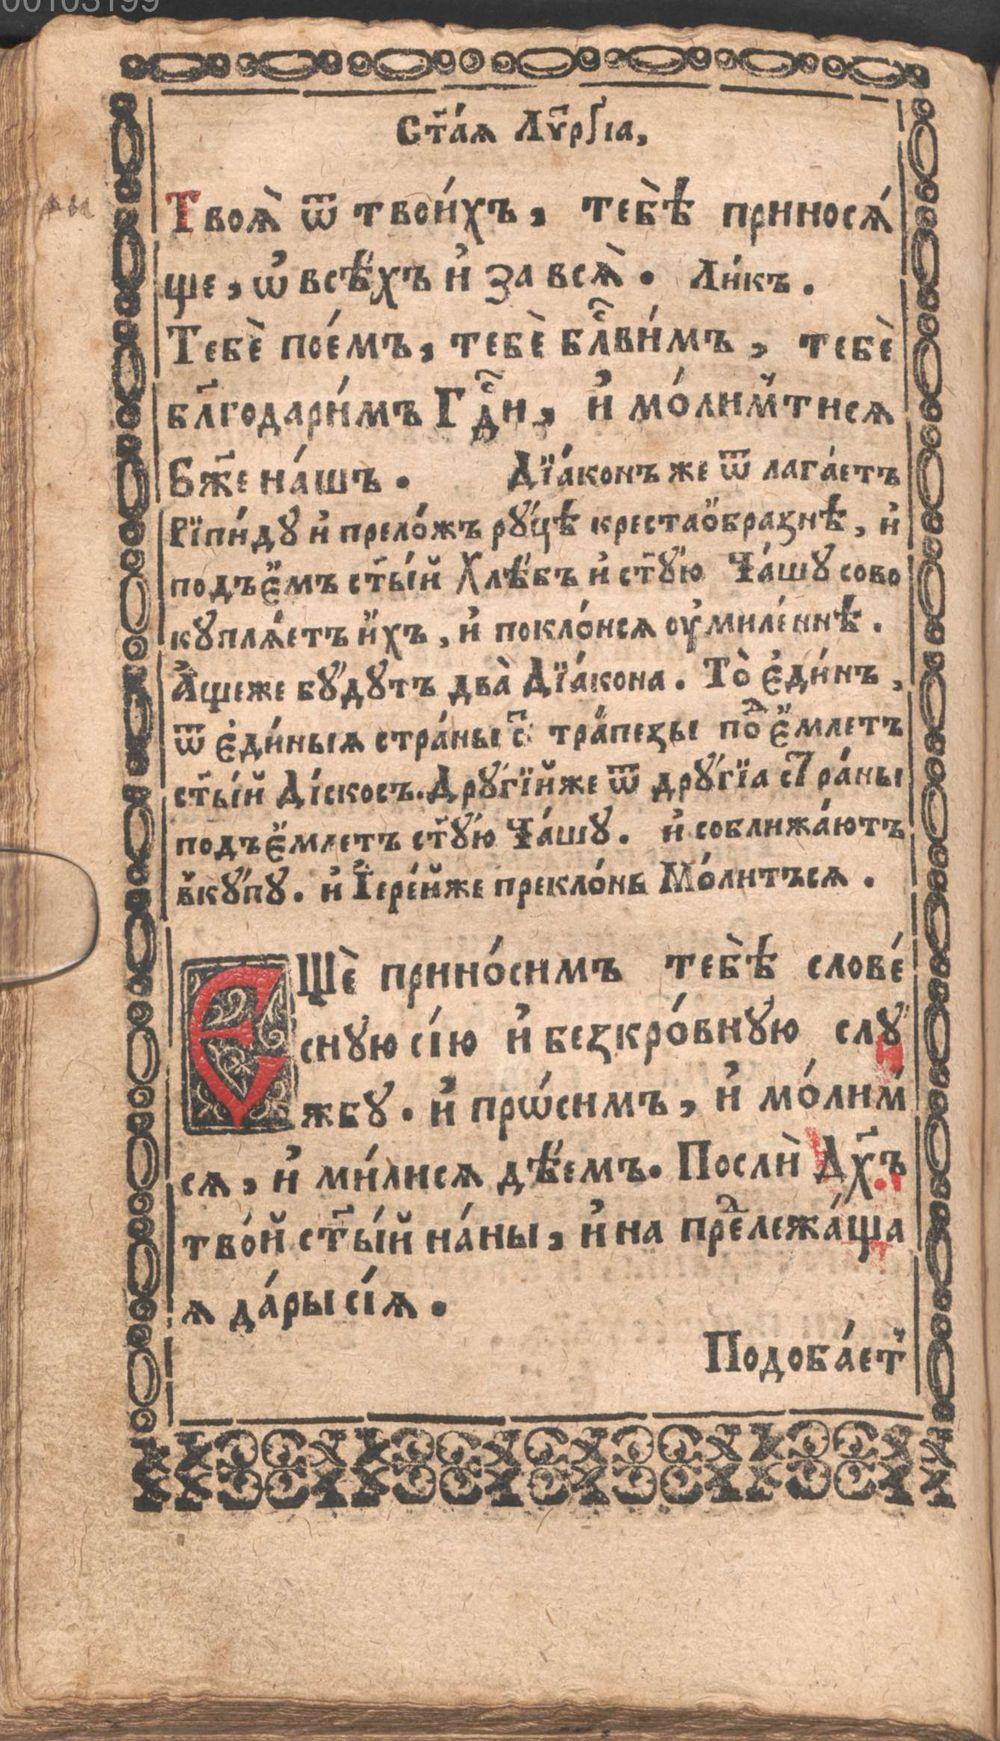 00103199
Ст҃а́ѧ Лѵ҃ргіа,
Твоѧ̀ ѿ твои́хъ, тебѣ̀ приносѧ́
ще, ѡ҆ всѣ́хъ и҆ за всѧ̀. Ли́къ.
Тебѐ пое́мъ, тебѐ бл҃ви́мъ, тебѐ
бл҃годари́мъ Гдⷭ҇и, и҆ мо́лимтисѧ
Бж҃е на́шъ. Дїа́конъ же ѿ лага́етъ
Рїпи́ду и҆ прело́жъ ру́цѣ крестаѻ́бразнѣ, и҆
подъе́мъ ст҃ы́й Хлѣ́бъ и҆ ст҃у́ю Ча́шу сово
куплѧ́етъ и҆́хъ, и҆ покло́нсѧ оу҆миле́ннѣ.
А҆́щеже бу́дутъ два̀ Дїа́кона. То̀ є҆ди́нъ,
ѿ є҆ди́ныѧ стра́ны ст҃ трапезы поⷣе́млетъ
ст҃ы́й Ді́скосъ. Дру́гїйже ѿ дру́гїа страны
подъе́млетъ ст҃у́ю Ча́шу. и҆ соближа́ютъ
вкꙋ́пу. и҆ І҆ере́йже прекло́нь Мо́литъсѧ.
ЄЩѐ прино́симъ тебѣ̀ слове́
сную сі́ю и҆ безкро́вную слу́
жбу. и҆ прѡ́симъ, и҆ мо́лим
сѧ, и҆ ми́лисѧ дѣ́емъ. Послѝ Дх҃ъ
тво́й ст҃ы́й на́ны, и҆ на преⷣлежа́ща
ѧ да́ры сі́ѧ.
Подоба́ет